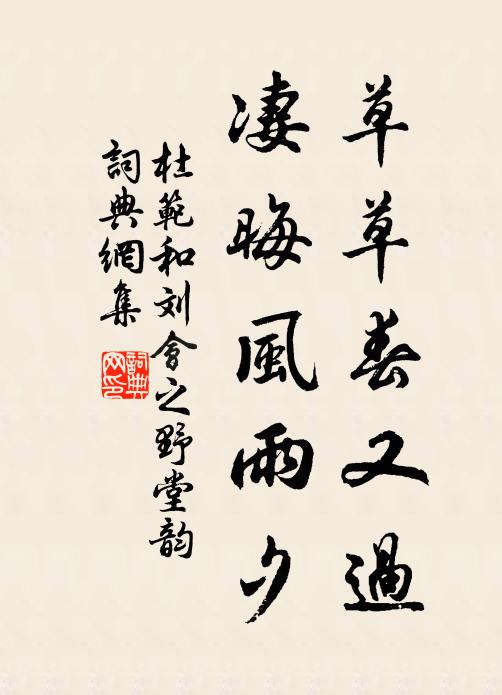 草草春又過
凄晦風雨夕
杜範和刘會之野堂韵
詞典網集
詞典网印